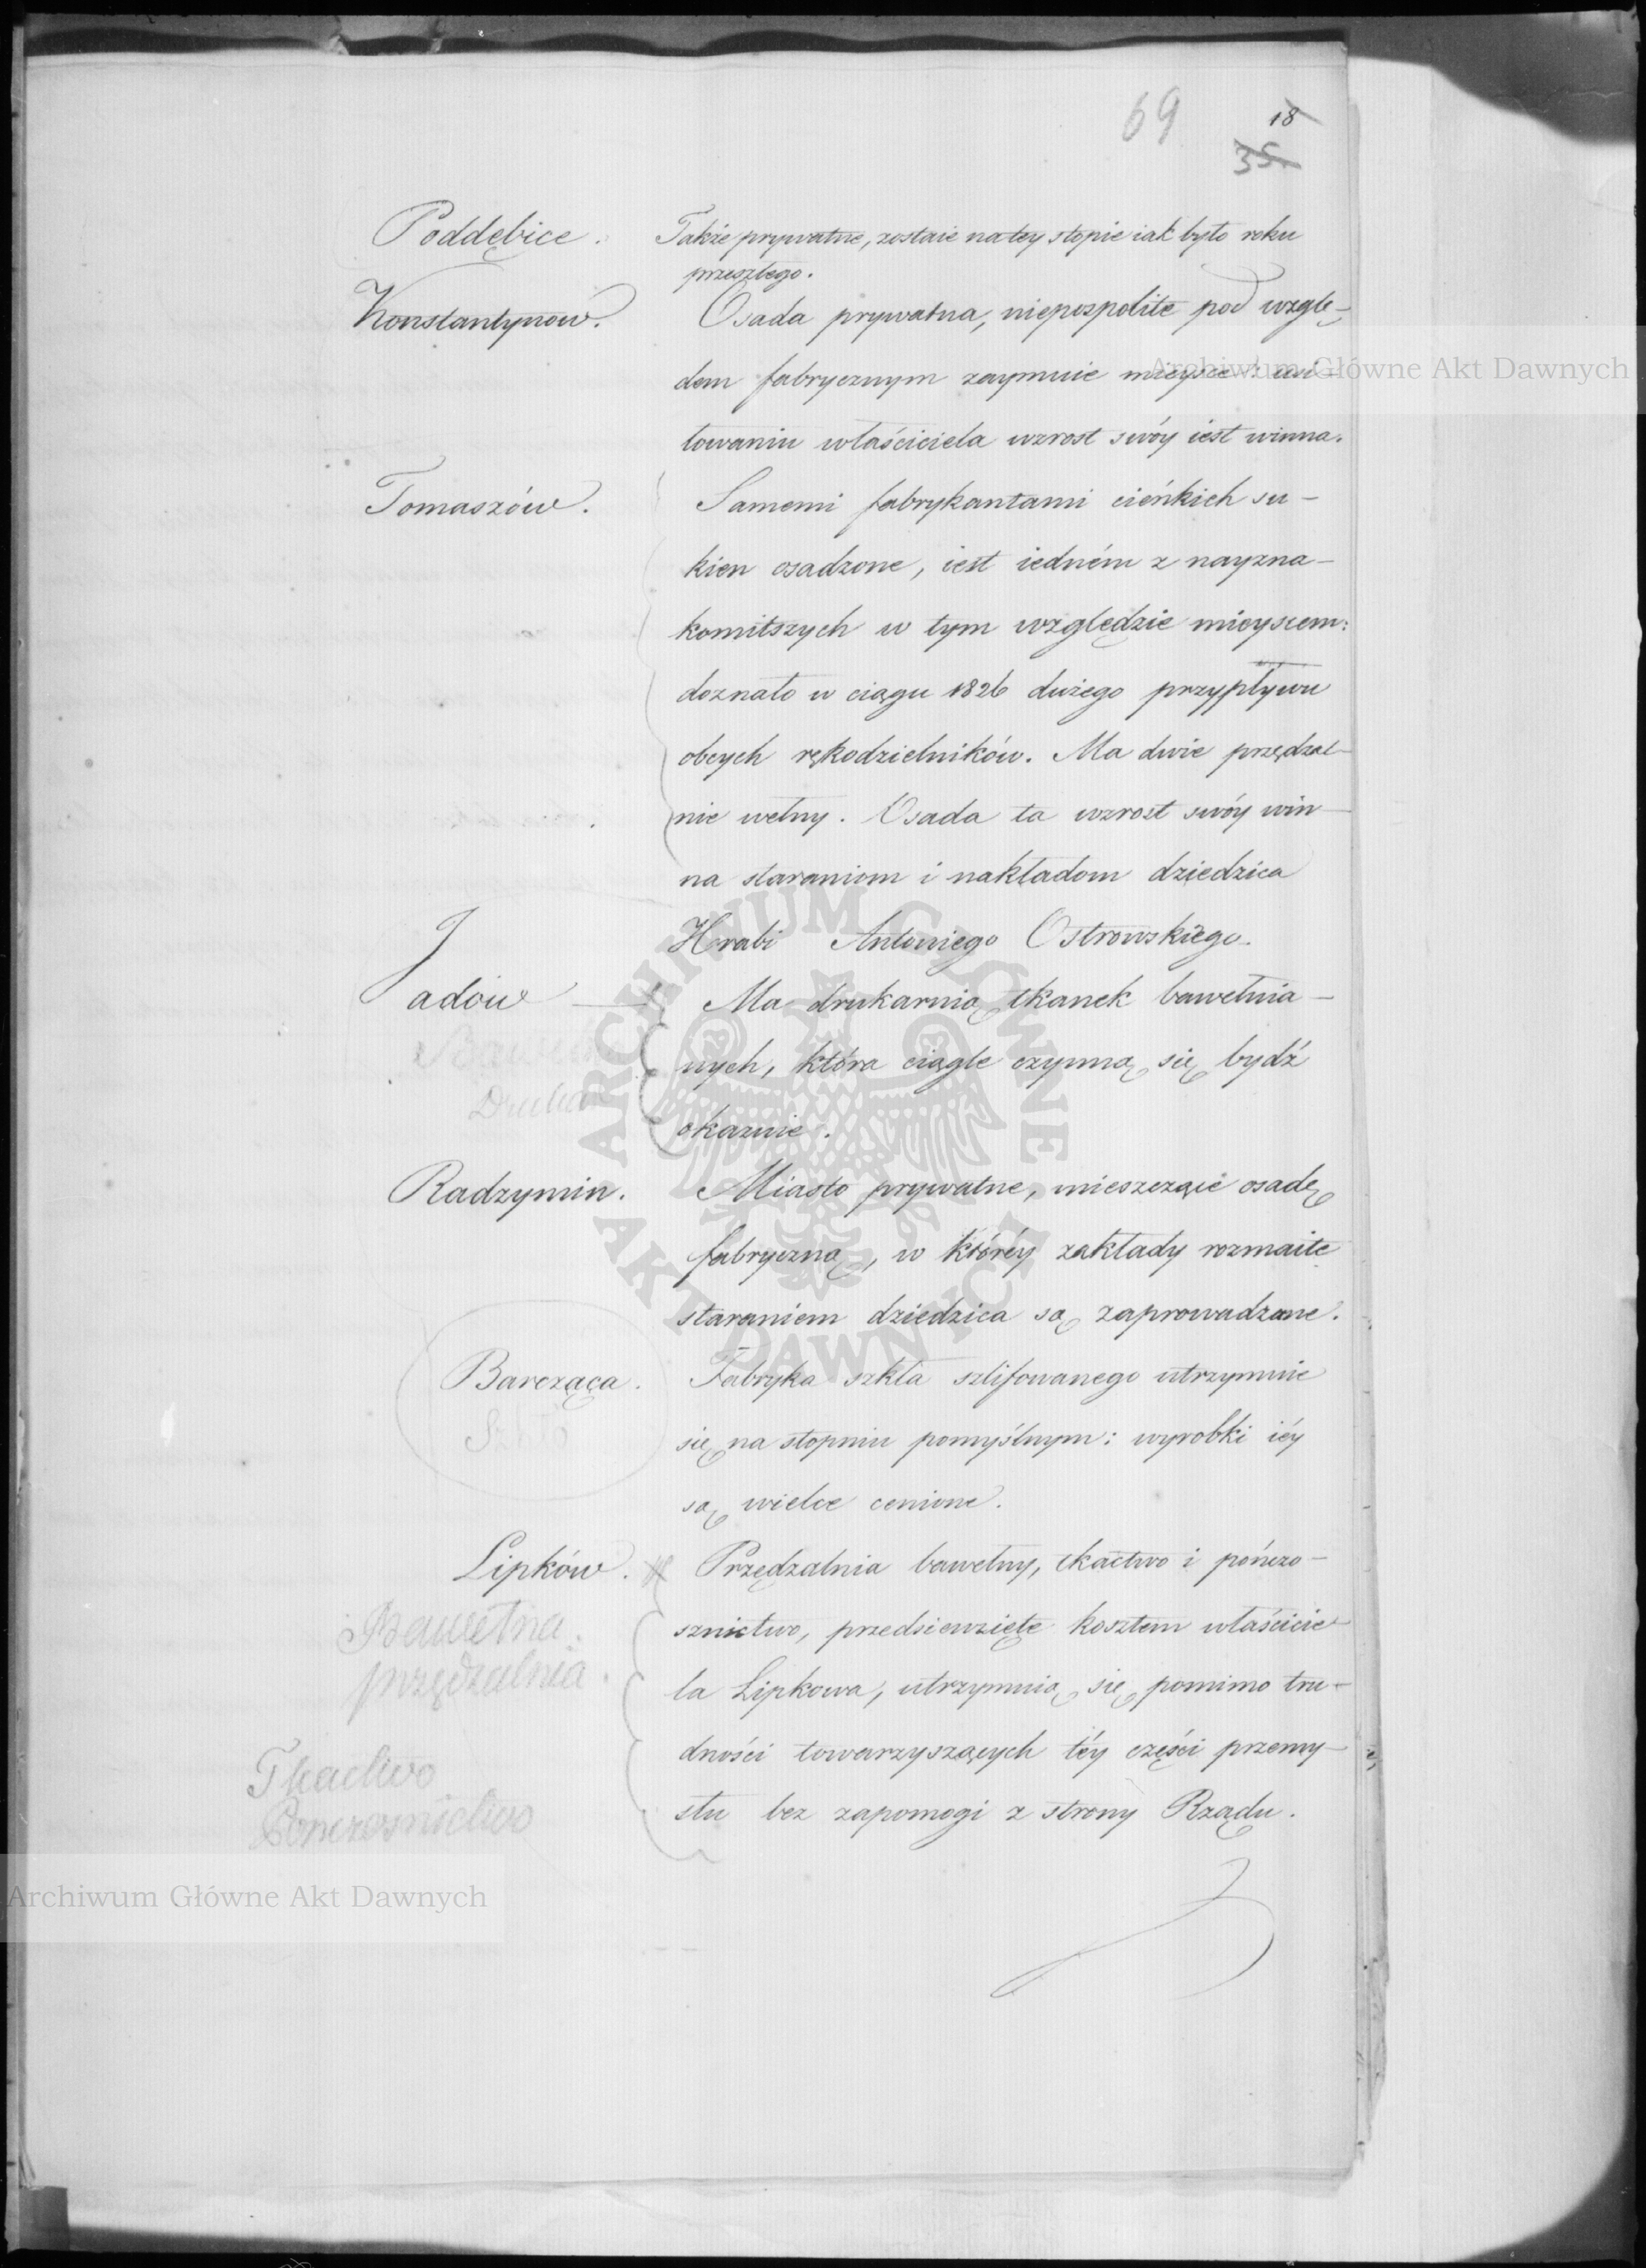 69
18
35.
Poddębice. Także prywatne, zostaie na tey stopie iak było roku
przeszłego.
Konstantynow. Osada prywatna, niepospolite pod wzglę-
dem fabrycznym zaymuie mieysce: usi-
łowaniu właściciela wzrost swóy iest winna.
Tomaszów. Samemi fabrykantami cieńkich su-
kien osadzone, iest iedném z nayzna-
komitszych w tym względzie mieyscem:
doznało w ciągu 1826 dużego przypływu
obcych rękodzielników. Ma dwie przędzal-
nie wełny. Osada ta wzrost swóy win-
na staraniom i nakładom dziedzica
Hrabi Antoniego Ostrowskiego.
Jadow Ma drukarnią tkanek bawełnia-
nych, która ciągle czynną się bydź
Druka
okazuie.
Radzymin. Miasto prywatne, mieszczące osadę
fabryczną, w któréy zakłady rozmaite
staraniem dziedzica są zaprowadzane.
Barcząca. Fabryka szkła szlifowanego utrzymuie
się na stopniu pomyślnym: wyrobki iéy
są wielce cenione.
Lipków. Przędzalnia bawełny, tkactwo i pończo-
sznictwo, przedsiewzięte kosztem właścicie-
Bawełna.
przędzalnia.
la Lipkowa, utrzymuią się pomimo tru-
dności towarzyszących téy części przemy-
Tkactwo
słu bez zapomogi z strony Rządu.
Pończosnictwo
Archiwum Główne Akt Dawnych
Archiwum Główne Akt Dawnych
ARCHIWUM GŁÓWNE AKT DAWNYCH